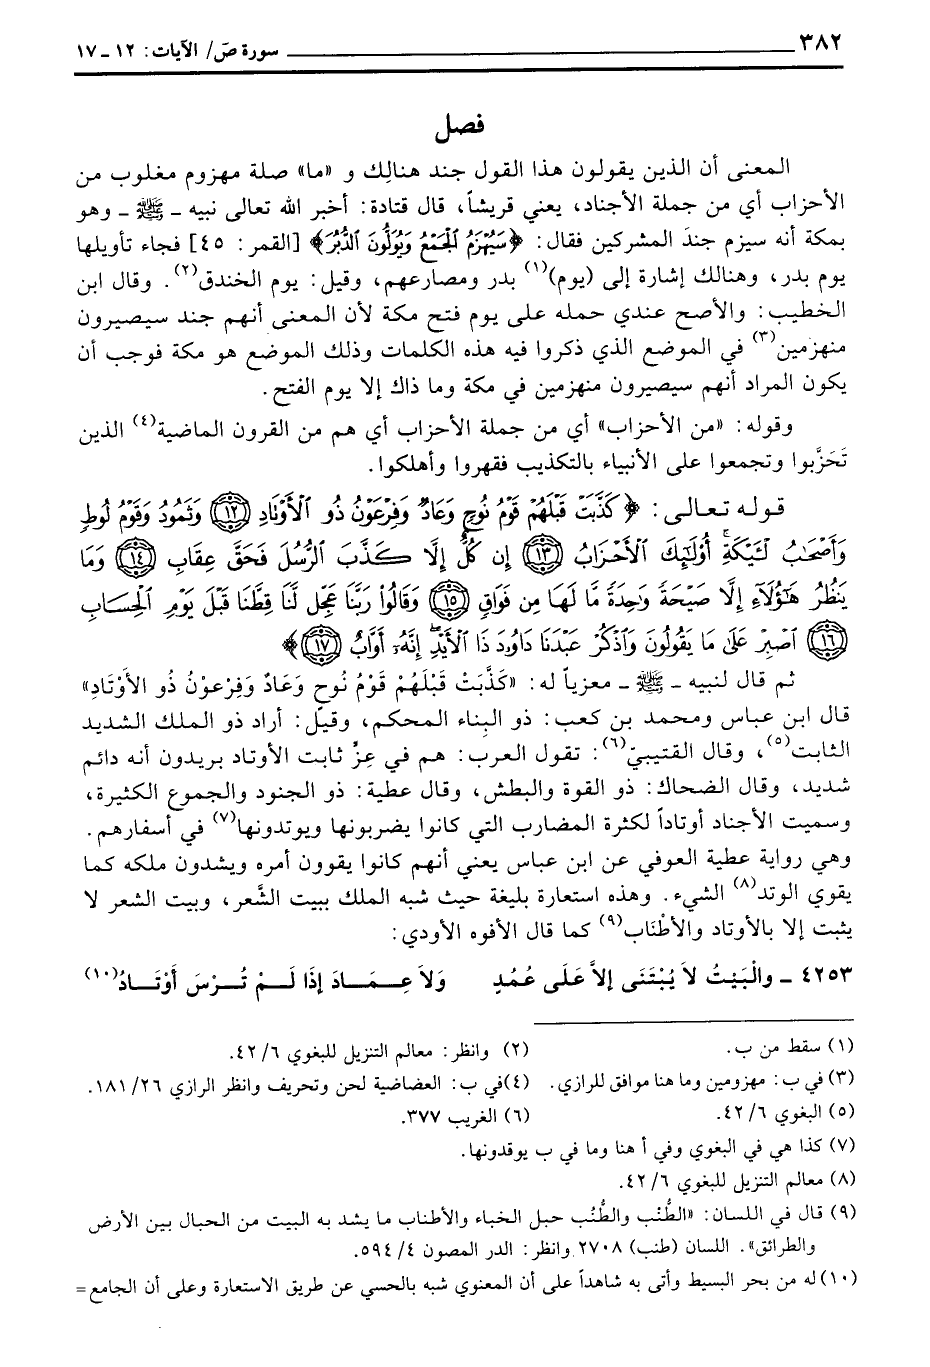 ٣٨٢ سورة صَ/ الآيات: ١٢ ـ ١٧
فصل
المعنى أن الذين يقولون هذا القول جند هنالِك و «ما» صلة مهزوم مغلوب من
الأحزاب أي من جملة الأجناد، يعني قريشاً، قال قتادة: أخبر الله تعالى نبيه ـ ﷺ ـ وهو
بمكة أنه سيزم جندَ المشركين فقال: ﴿سَيُهْزَمُ الْجَمْعُ وَيُوَلُّونَ الدُّبُرَ﴾ [القمر: ٤٥] فجاء تأويلها
يوم بدر، وهنالك إشارة إلى (يوم)(١) بدر ومصارعهم، وقيل: يوم الخندق(٢). وقال ابن
الخطيب: والأصح عندي حمله على يوم فتح مكة لأن المعنى أنهم جند سيصيرون
منهزمين(٣) في الموضع الذي ذكروا فيه هذه الكلمات وذلك الموضع هو مكة فوجب أن
يكون المراد أنهم سيصيرون منهزمين في مكة وما ذاك إلا يوم الفتح.
وقوله: «من الأحزاب» أي من جملة الأحزاب أي هم من القرون الماضية(٤) الذين
تَحَزَّبوا وتجمعوا على الأنبياء بالتكذيب فقهروا وأهلكوا.
قوله تعالى: ﴿كَذَّبَتْ قَبْلَهُمْ قَوْمُ نُوحٍ وَعَادٌ وَفِرْعَوْنُ ذُو ٱلْأَوْتَادِ ١٢ وَثَمُودُ وَقَوْمُ لُوطٍ
وَأَصْحَٰبُ لْـَٔيْكَةِ أُو۟لَٰٓئِكَ ٱلْأَحْزَابُ ١٣ إِن كُلٌّ إِلَّا كَذَّبَ ٱلرُّسُلَ فَحَقَّ عِقَابِ ١٤ وَمَا
يَنظُرُ هَٰٓؤُلَآءِ إِلَّا صَيْحَةً وَٰحِدَةً مَّا لَهَا مِن فَوَاقٍ ١٥ وَقَالُوا۟ رَبَّنَا عَجِّل لَّنَا قِطَّنَا قَبْلَ يَوْمِ ٱلْحِسَابِ
١٦ ٱصْبِرْ عَلَىٰ مَا يَقُولُونَ وَٱذْكُرْ عَبْدَنَا دَاوُۥدَ ذَا ٱلْأَيْدِ إِنَّهُۥٓ أَوَّابٌ ١٧﴾
ثم قال لنبيه ـ ﷺ ـ معزياً له: «كَذَّبَتْ قَبْلَهُمْ قَوْمُ نُوحٍ وَعَادٌ وَفِرْعَوْنُ ذو الأَوْتَادِ»
قال ابن عباس ومحمد بن كعب: ذو البناء المحكم، وقيل: أراد ذو الملك الشديد
الثابت(٥)، وقال القتيبيّ(٦): تقول العرب: هم في عِزٍّ ثابت الأوتاد يريدون أنه دائم
شديد، وقال الضحاك: ذو القوة والبطش، وقال عطية: ذو الجنود والجموع الكثيرة،
وسميت الأجناد أوتاداً لكثرة المضارب التي كانوا يضربونها ويوتدونها(٧) في أسفارهم.
وهي رواية عطية العوفي عن ابن عباس يعني أنهم كانوا يقوون أمره ويشدون ملكه كما
يقوي الوتد(٨) الشيء. وهذه استعارة بليغة حيث شبه الملك ببيت الشَّعر، وبيت الشعر لا
يثبت إلا بالأوتاد والأطْنَاب(٩) كما قال الأفوه الأودي:
٤٢٥٣ ـ والْبَيْتُ لاَ يُبْتَنَى إلاَّ عَلَى عُمُدٍ وَلاَ عِمَادَ إذَا لَمْ تُرْسَ أَوْتَادُ(١٠)
(١) سقط من ب. (٢) وانظر: معالم التنزيل للبغوي ٦/ ٤٢.
(٣) في ب: مهزومين وما هنا موافق للرازي. (٤) في ب: العضاضية لحن وتحريف وانظر الرازي ٢٦/ ١٨١.
(٥) البغوي ٦/ ٤٢. (٦) الغريب ٣٧٧.
(٧) كذا هي في البغوي وفي أ هنا وما في ب يوقدونها.
(٨) معالم التنزيل للبغوي ٦/ ٤٢.
(٩) قال في اللسان: «الطُّنْب والطُّنُب حبل الخباء والأطناب ما يشد به البيت من الحبال بين الأرض
والطرائق». اللسان (طنب) ٢٧٠٨ وانظر: الدر المصون ٤/ ٥٩٤.
(١٠) له من بحر البسيط وأتى به شاهداً على أن المعنوي شبه بالحسي عن طريق الاستعارة وعلى أن الجامع=